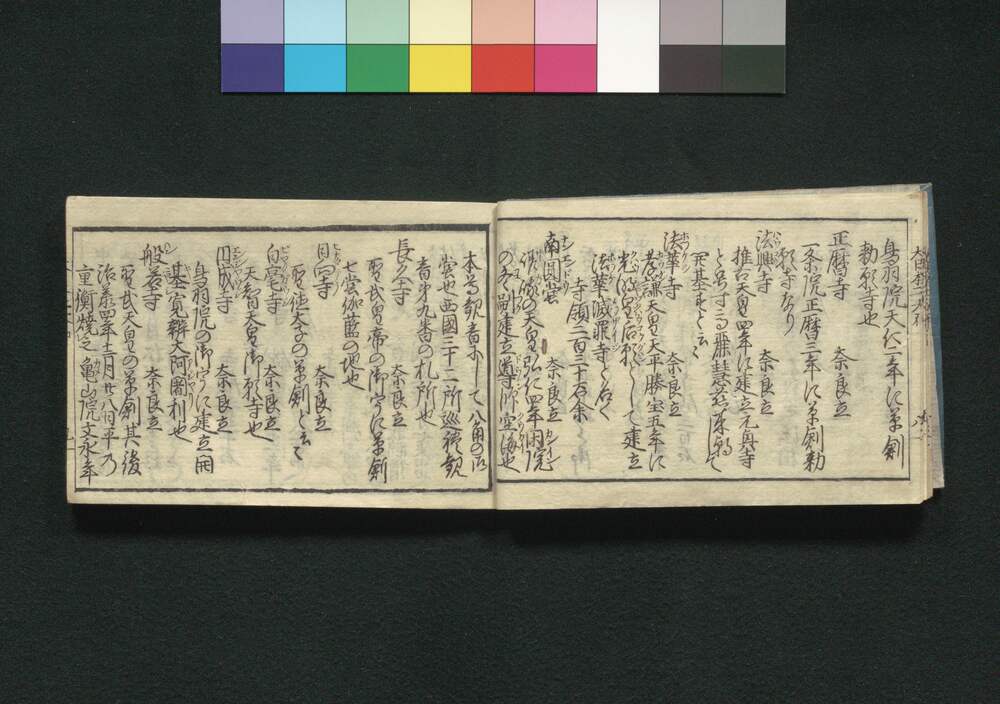 鳥羽院天仁二年に草創
勅願寺也
正暦寺 奈良立
一条院正暦三年に草創勅
願寺なり
法興寺 奈良立
推古天皇四年に建立元真寺
と号す高麗慧慈
開基すと云々
法華寺 奈良立
孝謙天皇天平勝宝五年に
光明皇后願として建立
法華滅罪寺と名く
寺領二百三十石余
南圓堂 奈良立
嵯峨の天皇弘仁四年閑院
の冬嗣建立導師空海也
本尊観音にして八角の
堂也西國三十三所巡禮観
音第九番の札所也
長久寺 奈良立
聖武皇帝の御宇に草創
七堂伽藍の地也
眉間寺 奈良立
聖徳太子の草創と云々
白毫寺 奈良立
天智天皇御願寺也
円成寺 奈良立
鳥羽院の御宇に建立開
基寛辨大阿闍利也
般若寺 奈良立
聖武天皇の草創其後
治承四年十二月廿八日平乃
重衡焼之亀山院文永年